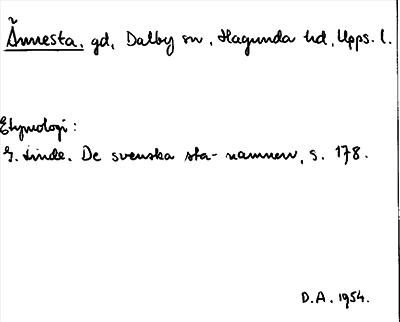 Ånnesta, gd, Dalby sn, Hagunda hd, Upps. l.
Etymologi:
G. Linde. De svenska sta-namnen, s. 178.
D.A. 1954.